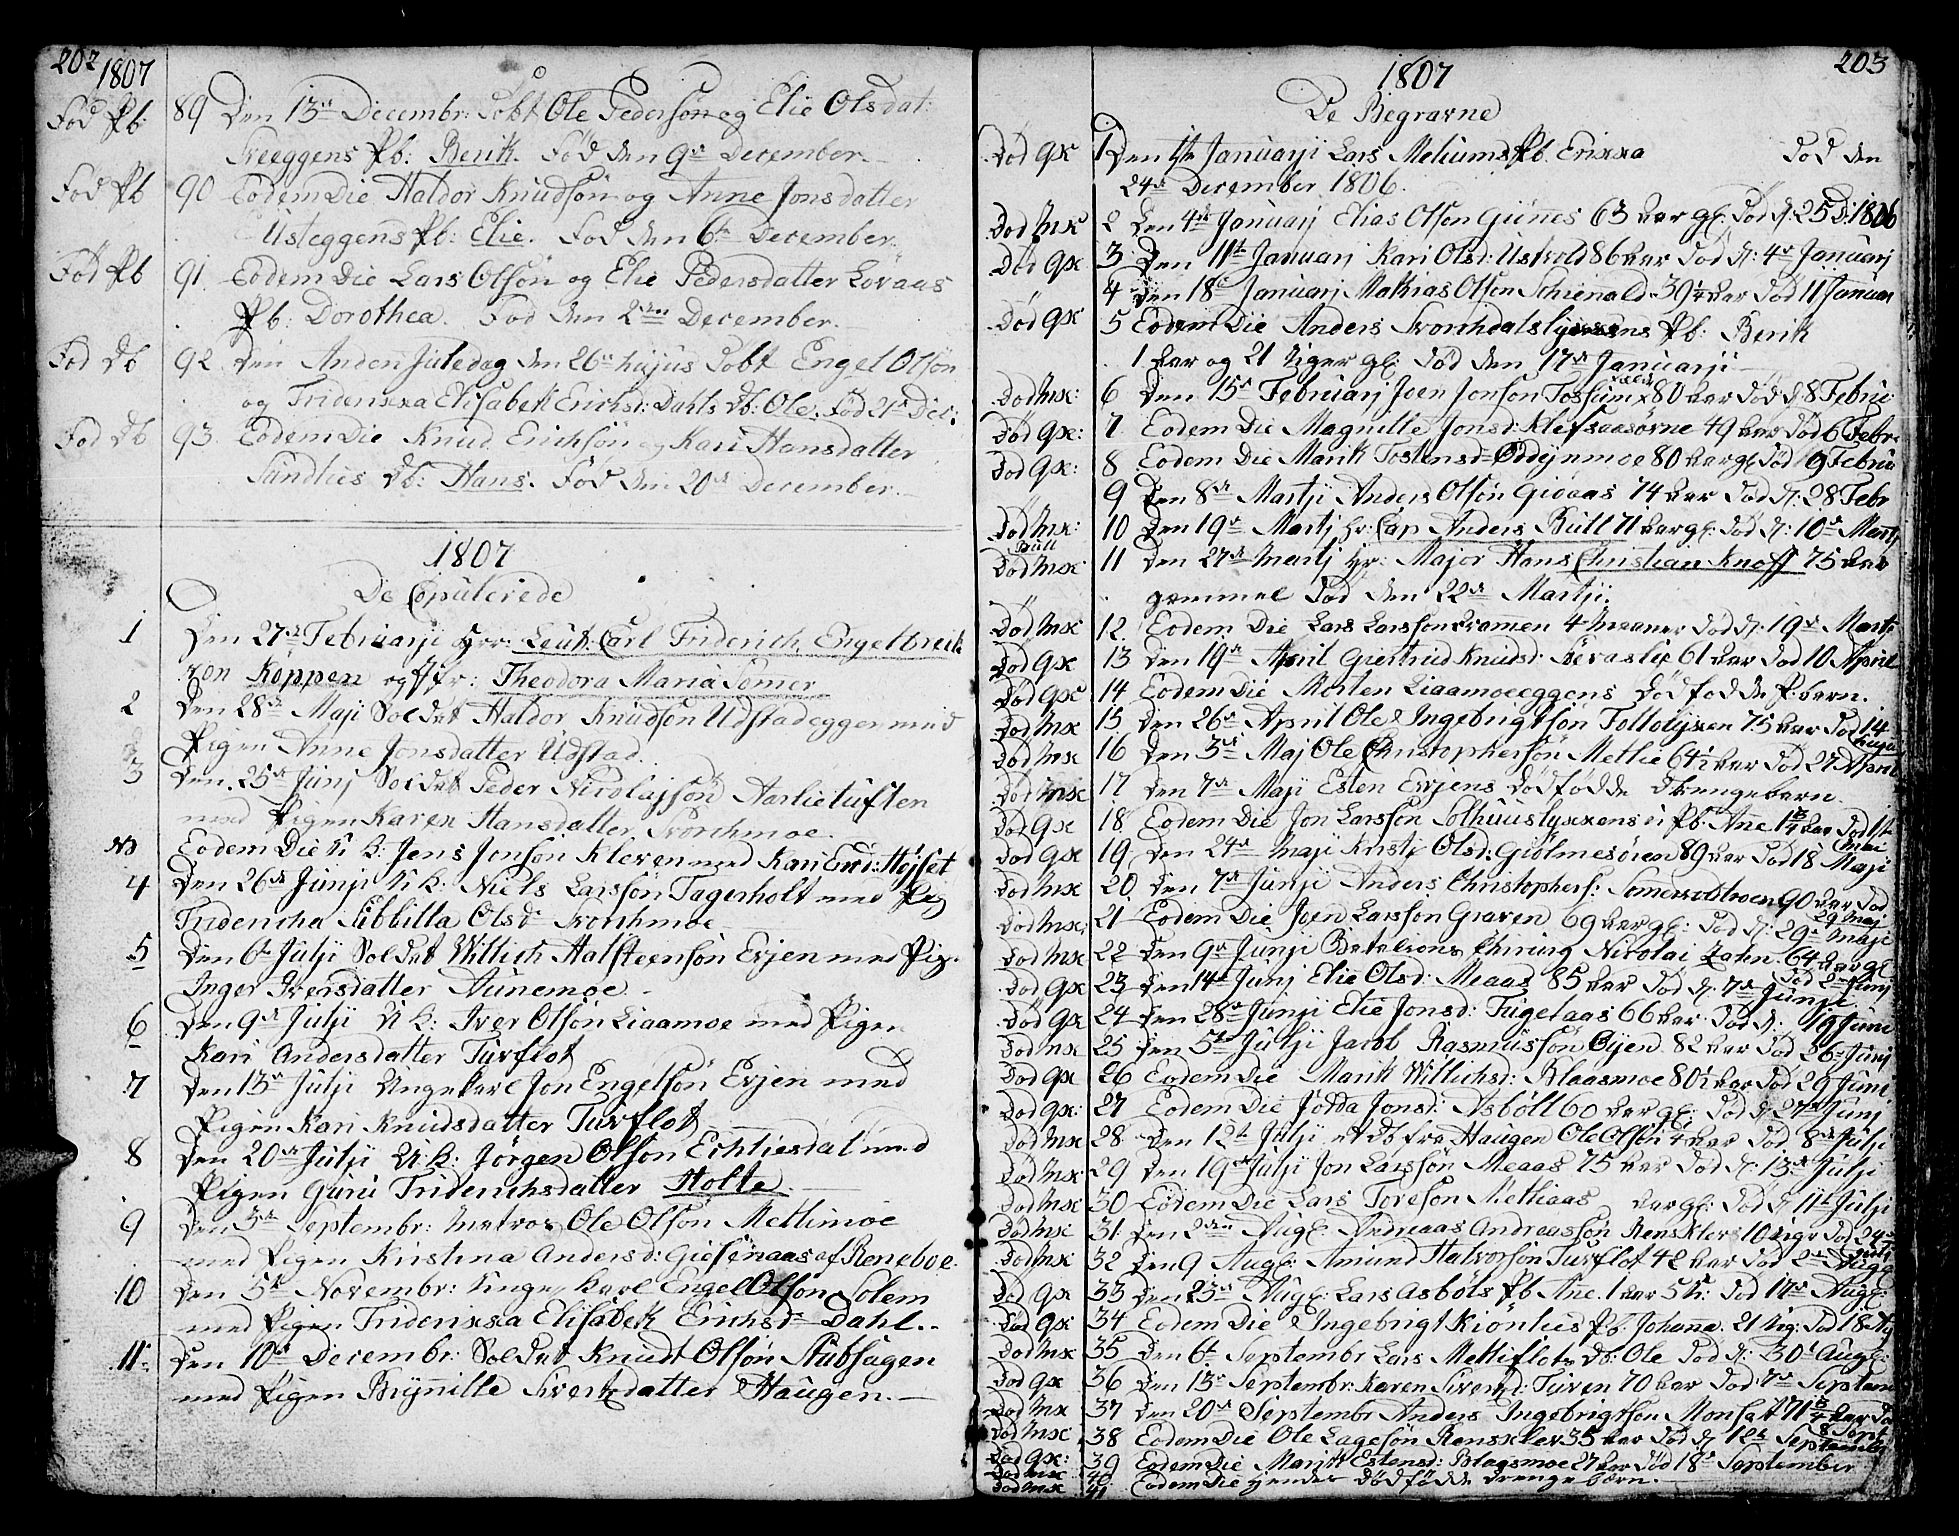 202
1807
Fød Pb 89 Den 13de Decembr: Døbt Ole Pedersön og Elie Olsdat:
Sveeggens Pb: Berit. Fød den 9de December.
Fød Pb 90 Eodem Die Haldor Knudsön og Anne Jonsdatter
Usteggens Pb: Elie. Fød den 6te December.
Fød Pb 91. Eodem Die Lars Olsön og Elie Pedersdatter Lövaas
Pb: Dorothea. Fød den 2den December.
Fød Db 92. Den Anden Juledag den 26de hujus Døbt Engel Olsön
og Friderixa Elisabeth Erichsd: Dahls Db: Ole. Fød 21de Dec:
Fød Db 93. Eodem Die Knud Erichsön og Kari Hansdatter
Sundlies Db: Hans. Fød den 20de December.
1807
De Copulerede
1 Den 27de Februarji Hrr. Leut: Carl Friderich Engelbreth
von Köppen og Jfr: Theodora Maria Somer
2 Den 28de Maji Soldat Haldor Knudsön Udstadeggen med
Pigen Anne Jonsdatter Udstad.
3 Den 25de Junj Soldat Peder Nicolajsön Aarlietuften
med Pigen Karen Hansdatter Storchmoe.
Eodem Die U K: Jens Jonsön Kleven med Kari End: Højset
4 Den 26de Junji U K: Niels Larssön Fagerholt med Pig
Fridericha Sibbilla Olsd: Storchmoe
5 Den 6te Julji Soldat Willich Halsteensön Evjen med Pig.
Inger Iversdatter Aunemoe.
6 Den 9de Julji U K: Iver Olsön Liaamoe med Pigen
Kari Andersdatter Turflot
7 Den 13de Julji Ungekarl Jon Engelsön Evjen med
Pigen Kari Knudsdatter Turflot
8 Den 20de Julji U K: Jörgen Olsön Echliesdal med
Pigen Guru Friderichsdatter Holte.
9 Den 3de Septembr: Matros Ole Olsön Mettimoe
med Pigen Kristina Andersd: Giesenaas af Reneboe.
10 Den 5te Novembr: Unge Karl Engel Olsön Solem
med Pigen Friderixa Elisabeth Erichsd: Dahl.
11. Den 10de Decembr: Soldat Knudt Olsön Stubsagen
med Pigen Brynnille Sivertsdatter Haugen.
203
1807
De Begravne
Død Qx 1 Den 1ste Januarji Lars Meliums Pb. Erixxa Død den
24de December 1806.
Død Mx 2 Den 4de Januarj Elias Olsön Giünnes 63 Aar gl: Død d: 25 D: 1806
Død Qx 3 Den 11te Januarj Kari Olsd: Ustvold 86 Aar Død d: 4de Januarj
4 Den 18de Januarj Mathias Olsön 39 1/4 Aar Død 11 Januar
Død Qx 5 Eodem Die Anders Pb: Berit
1 Aar og 21 Uger gl: Død den 17de Januarji
Død Mx: 6 Den 15de Februarj Joen Jonsön 80 Aar Død d: 8 Febru
Død Qx: 7 Eodem Die Magnille Jonsd: 49 Aar Død 6 Febr.
Død Qx: 8 Eodem Die Marit Tostensd: 80 Aar gl Død 9 Febru
9 Den 8de Martji Anders Olsön Giöaas 74 Aar Død d: 28 Febr
Død Mx: 10 Den 19de Martj Hr: Cap Anders Bull 71 Aar gl: Død d: 10de Martj
Bull
Død Mx 11 Den 27de Martj Hr: Major Hans Christian Knoff 75 Aar
gammel Død den 22de Martji.
Død Mx 12. Eodem Die Lars Larssön Kramen 4 Maaner Død d: 19de Martj
Død Qx 13 Den 19de April Giertrud Knudsd: 61 Aar Død 10 April
Død Qx 14 Eodem Die Morten Liaamoeeggens Dødfødde P: barn.
Død Mx 15. Den 26de April Ole Ingebrigtsön 75 Aar Død 14
hujus
Død Mx 16 Den 3de Maj Ole Christophersön Metlie 64 1/2 Aar Død 27 April
Død Mx 17 Den 7de Maji Esten Evjens Dødfødde Drengebarn.
Død Qx 18 Eodem Die Jon Larssön Pb. Ane 1 3/4 Aar Død 1ste
Mai
Død Qx 19. Den 24de Maji Kristi Olsd: Giölmesören 89 Aar Død 18 Maji
Død Mx 20. Den 7de Junji Anders Christophers: 90 Aar Død
29 Maj
Død Mx: 21. Eodem Die Joen Larssön Graven 69 Aar gl: Død d: 29de Maji
Død Mx 22 Den 9de Junji Batalions Chirurg Nicolai Zahn 64 Aar gl
Død 2den Junj
Død Qx 23 Den 14de Junj Elie Olsd: Meaas 85 Aar Død d: 7de Junji
Død Qx 24 Den 28de Junji Elie Jonsd: Fugelaas 66 Aar Død d: 19 Juni
Død Mx 25 Den 5te Julji Jacob Rasmussön Öyen 82 Aar Død 26de Junj
Død Qx 26 Eodem Die Marit Willichsd: Blaasmoe 80 1/2 Aar Død 29 Juni
Død Qx: 27 Eodem Die Jödda Jonsd: Asböll 60 Aar gl: Død d: 27de Junj
Død Mx 28 Den 12te Julji et Db fra Haugen Ole Olsön 4 Aar Død 8de Julji
Død Mx: 29 Den 19de Julji Jon Larssön Meaas 75 Aar Død d: 13de Julji
Død Mx 30 Eodem Die Lars Toresön Metliaas Aar gl: Død d: 11te Julji
Død Mx 31. Den 2den Aug: Andreaas Andreassön Rensklev 10 Uger Død 24de
Julj
Død Mx 32 Den 9 Aug: Amund Halvorsön Turflot 42 Aar Død 2den Aug
Død Qx 33 Den 23de Aug: Lars Asböls Pb Ane. 1 Aar 5 U: Død 14de Aug:
Død Qx 34 Eodem Die Ingebrigt Kiönlies Pb. Johana. 21 Ug: Død 18 Aug
Død Mx 35 Den 6te Septembr Lars Mettiflots Db: Ole Død d: 30te Aug:
Død Qx 36 Den 13de Septembr: Karen Sivertsd: Turen 70 Aar Død 7de Septem
Død Mx 37 Den 20de Septembr Anders Ingebrigtsön Monset 71 3/4 Aar Død
8 Sept
Død Mx 38 Eodem Die Ole Lagesön Rensklev 35 Aar Død d: 12te September
Død Qx: 39 Eodem Die Marit Estensd: Blaasmoe 27 Aar Død 18de September
Død Mx 40 Eodem Die Dødfødde Drengebørn.
Død Mx 41